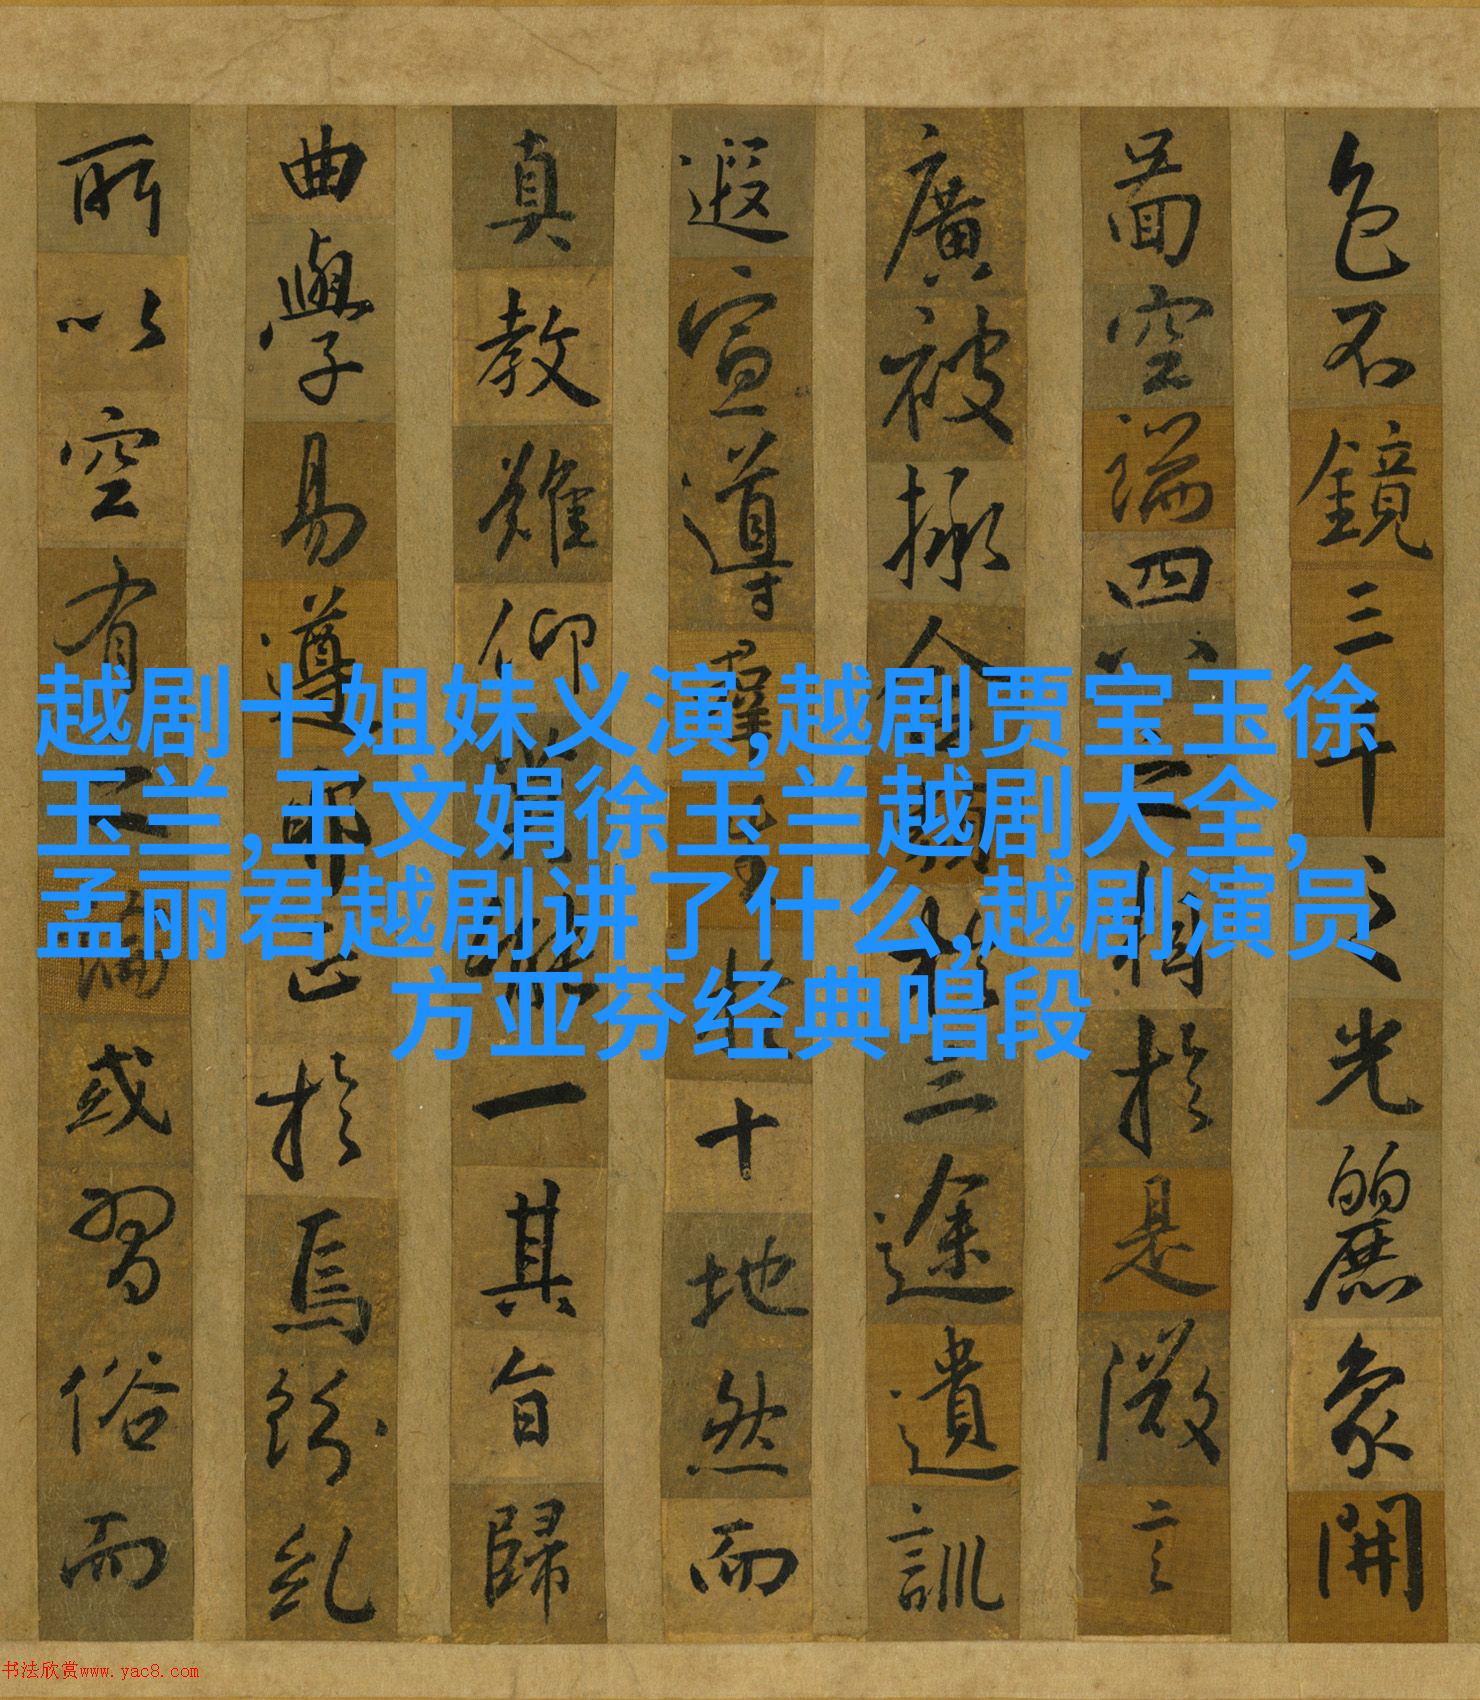 色不鏡三千之光麗象開
啚空端四八之相於是微言
廣被拯含類於三途遺訓
遐宣導群生於十地然而
真教難仰莫能一其旨歸
曲學易遵邪正於焉紛糺
所以空有之論或習俗而
越剧十姐妹义演,越剧贾宝玉徐
玉兰,王文娟徐玉兰越剧大全,
孟丽君越剧讲了什么,越剧演员
方亚芬经典唱段
书法欣赏www.yac8.com